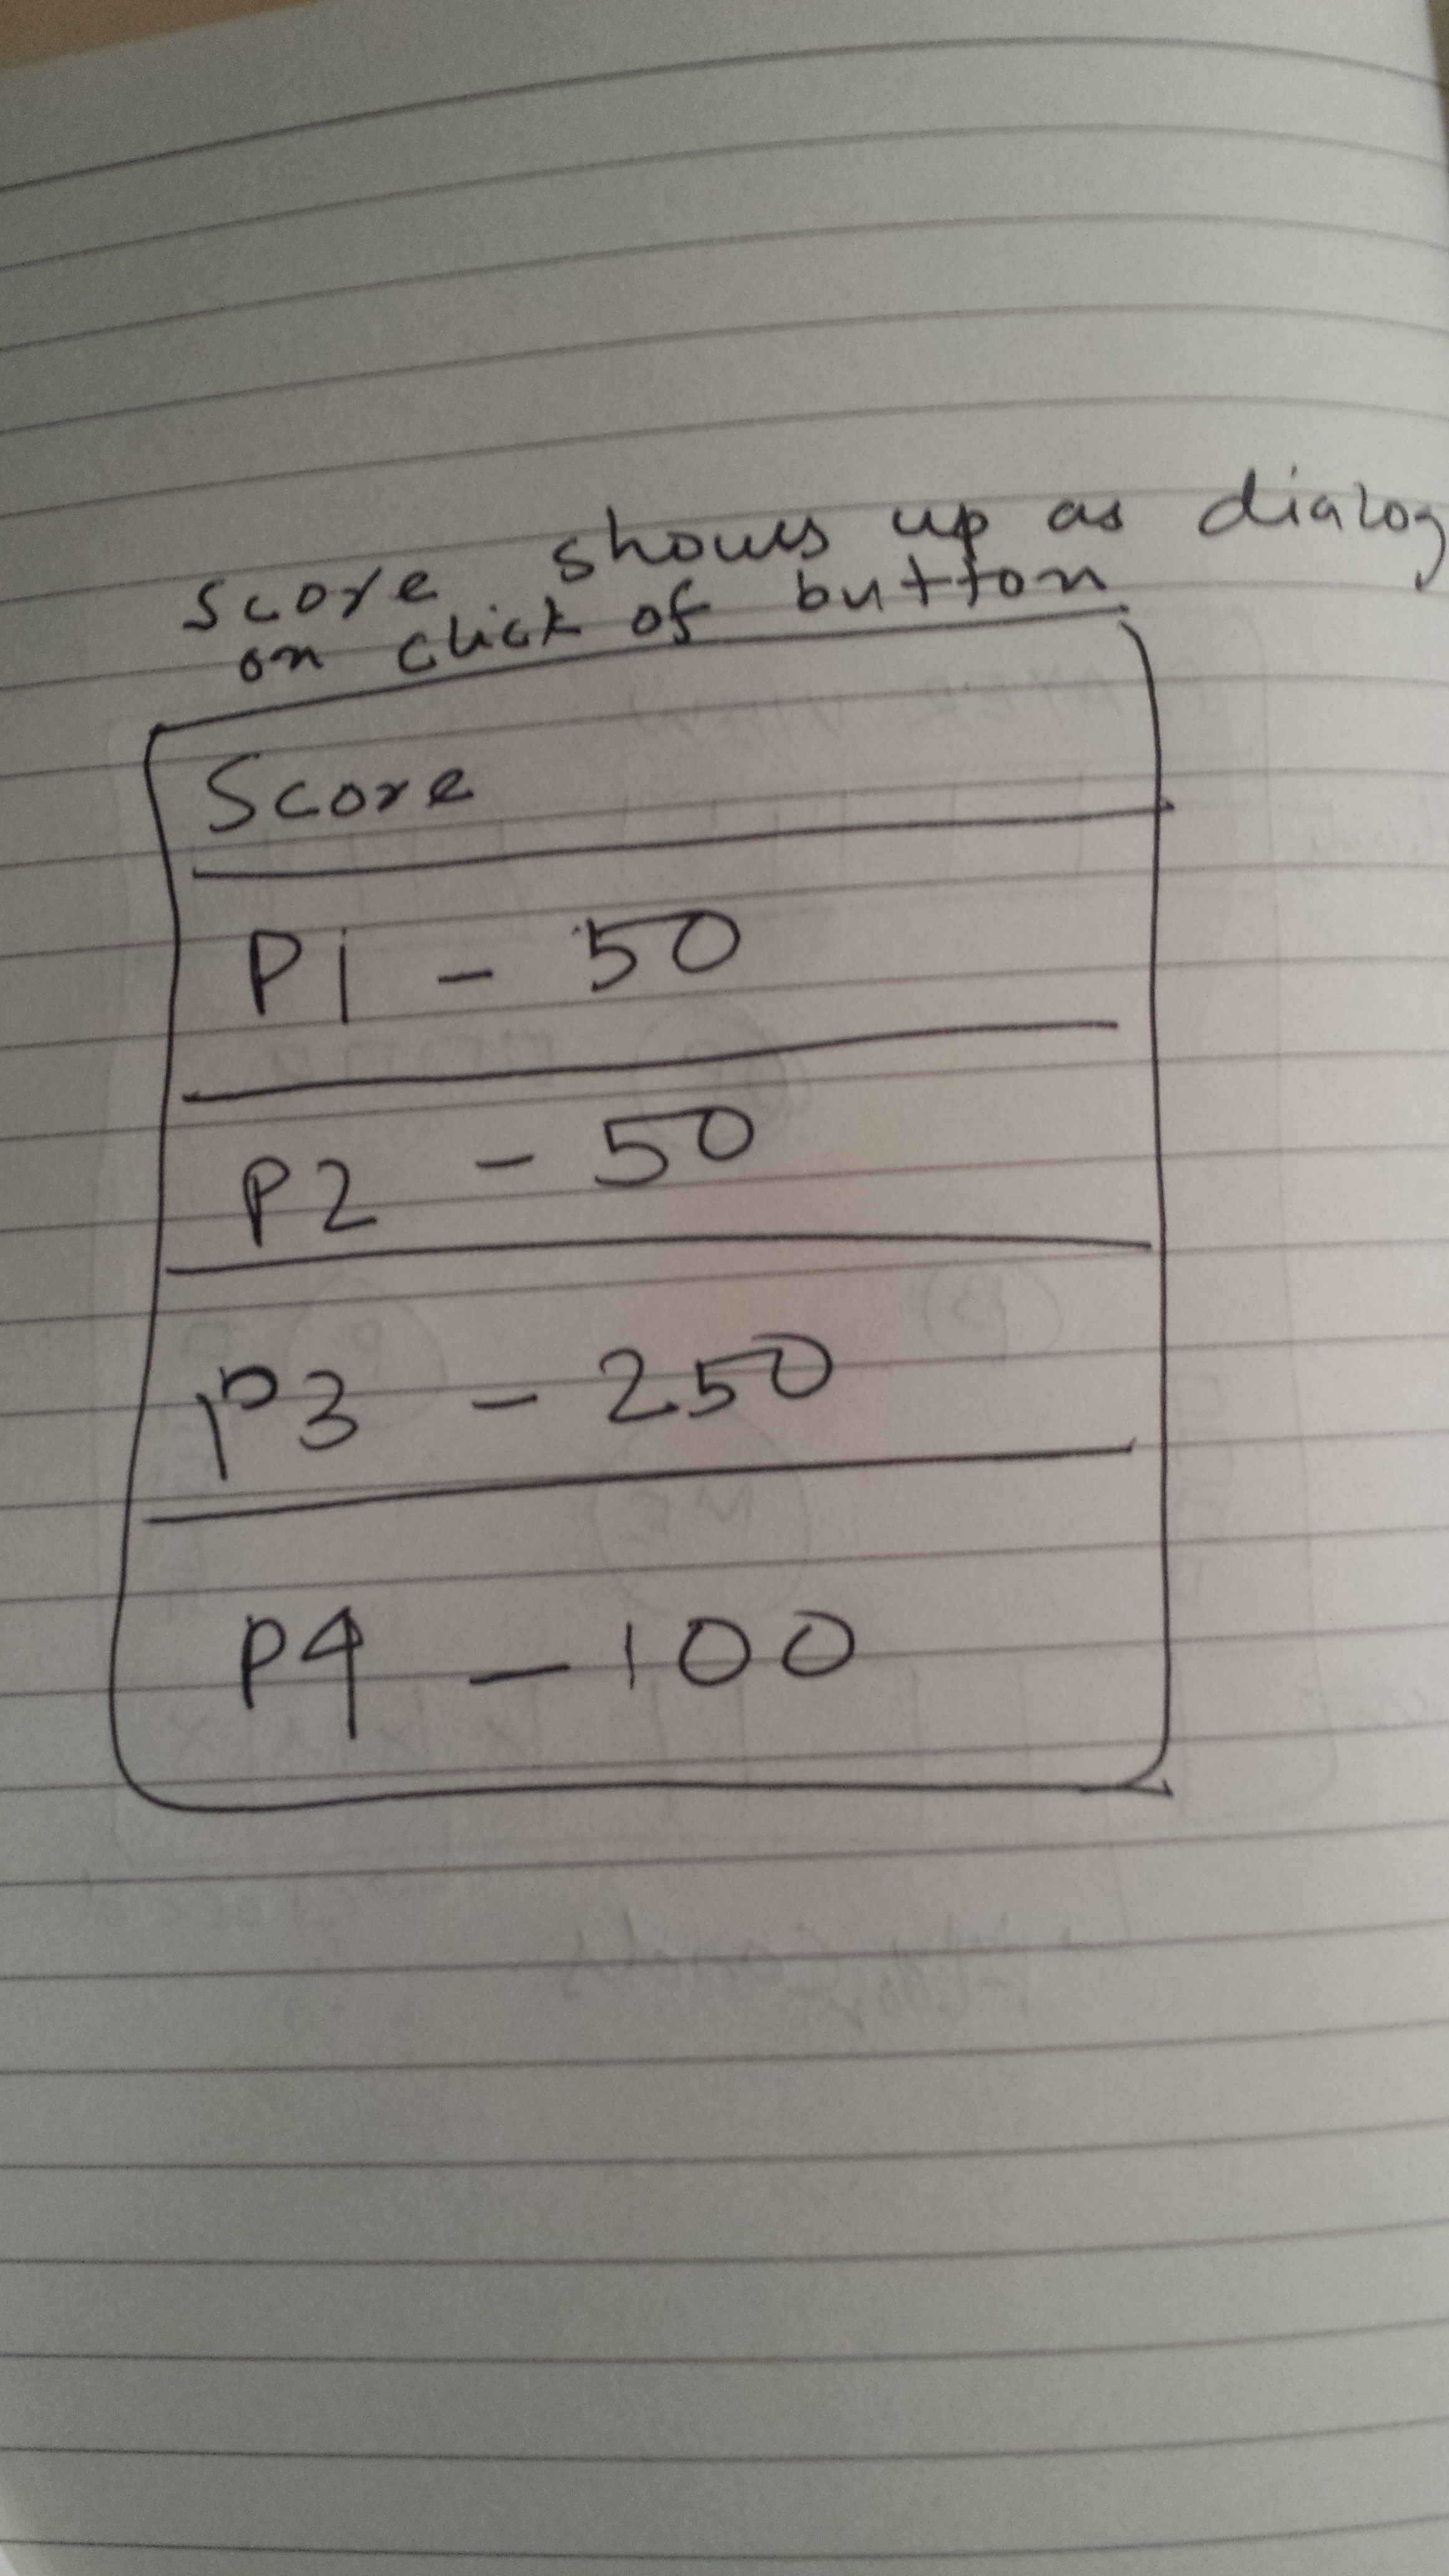 Score shows up as dialog
on click of button
Score
P1 - 50
P2 - 50
P3 - 250
P4 - 100